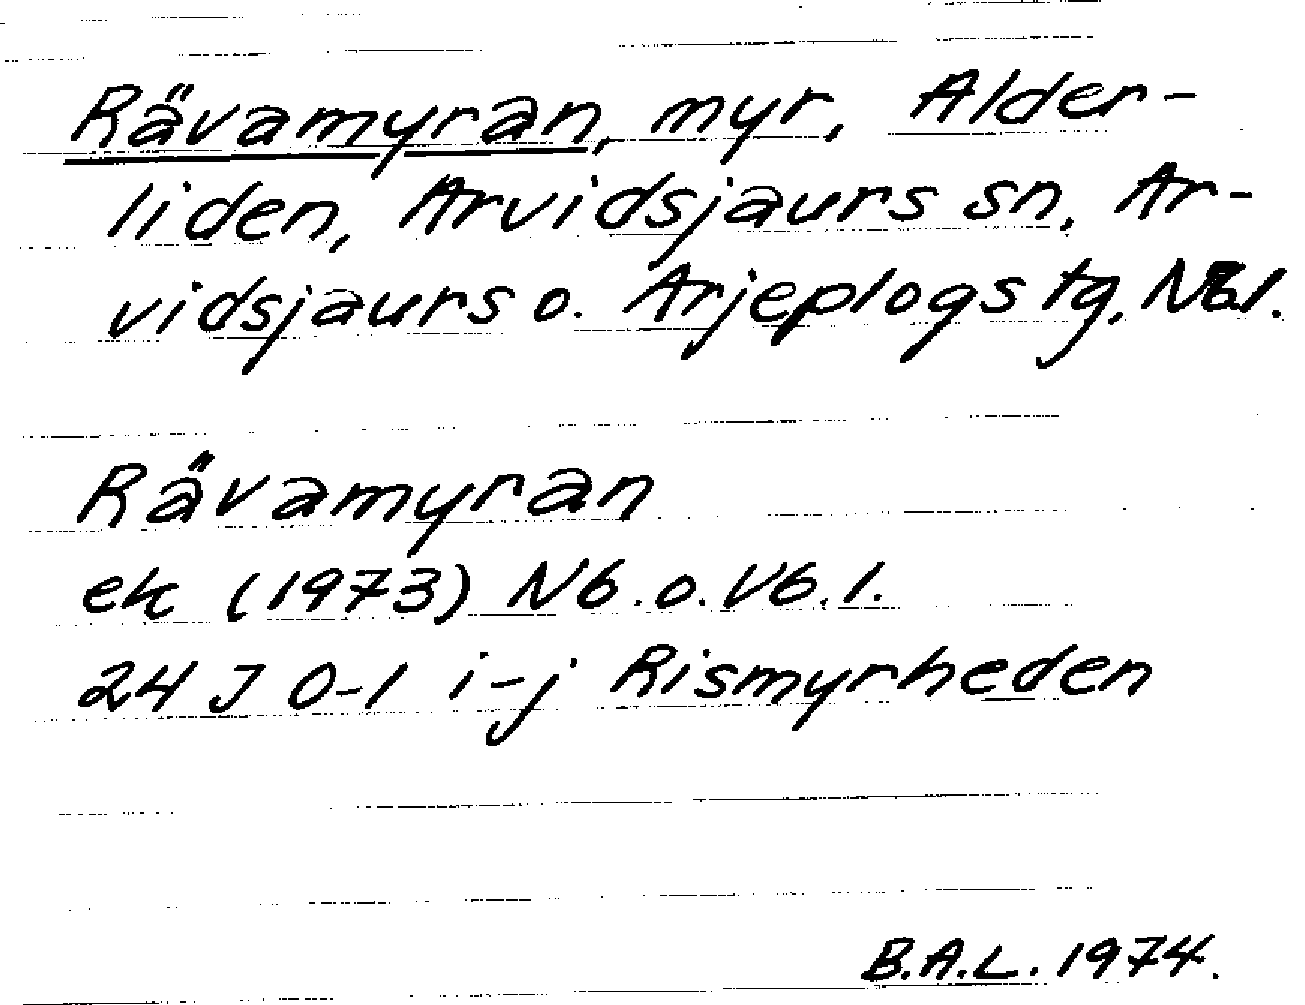 Rävamyran, myr, Alder-
liden, Arvidsjaurs sn, Ar-
vidsjaurs o. Arjeplogs tg, Nbl.
Rävamyran
ek (1973) Nb.o.Vb.l.
24 J 0-1 i-j Rismyrheden
B.A.L. 1974.